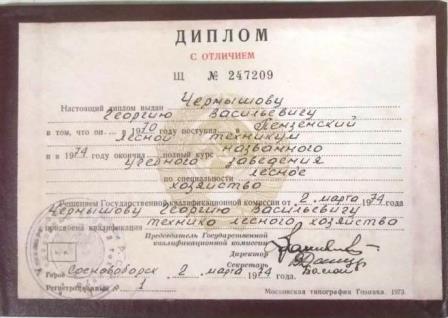 ДИПЛОМ
С ОТЛИЧИЕМ
Щ № 247209
Настоящий диплом выдан Чернышову
Георгию Васильевичу
в том, что он 1970 году поступил Пензенский
лесной техникум
и в 1974 году окончил полный курс названного
учебного заведения
по специальности лесное
хозяйство
Решением Государственной квалификационной комиссии от 2 марта 1974 года
Чернышову Георгию Васильевичу
присвоена квалификация техника лесного хозяйства
Председатель Государственной
квалификационной комиссии
Директор
Секретарь
Город Сосновоборск 2 марта 1974 года.
Регистрационный № 1
Московская типография Гознака. 1973.